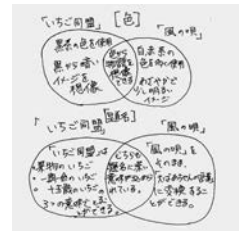 「いちご同盟」 [色] 「風の唄」
黒系の色を使用
黒から暗い
イメージを
想像
色から
物語を
想像
できる
白・赤系の
色を使用
あざやかで
少し明るい
イメージ
「いちご同盟」 [題名] 「風の唄」
「いちご同盟」は
・果物のいちご
・一期一会のいちご
・十五歳のいちご
3つの意味にとる
ことができる。
どちらも
題名に深い
意味が込めら
れている。
「風の唄」を
そのまま、
に変換するこ
とができる。